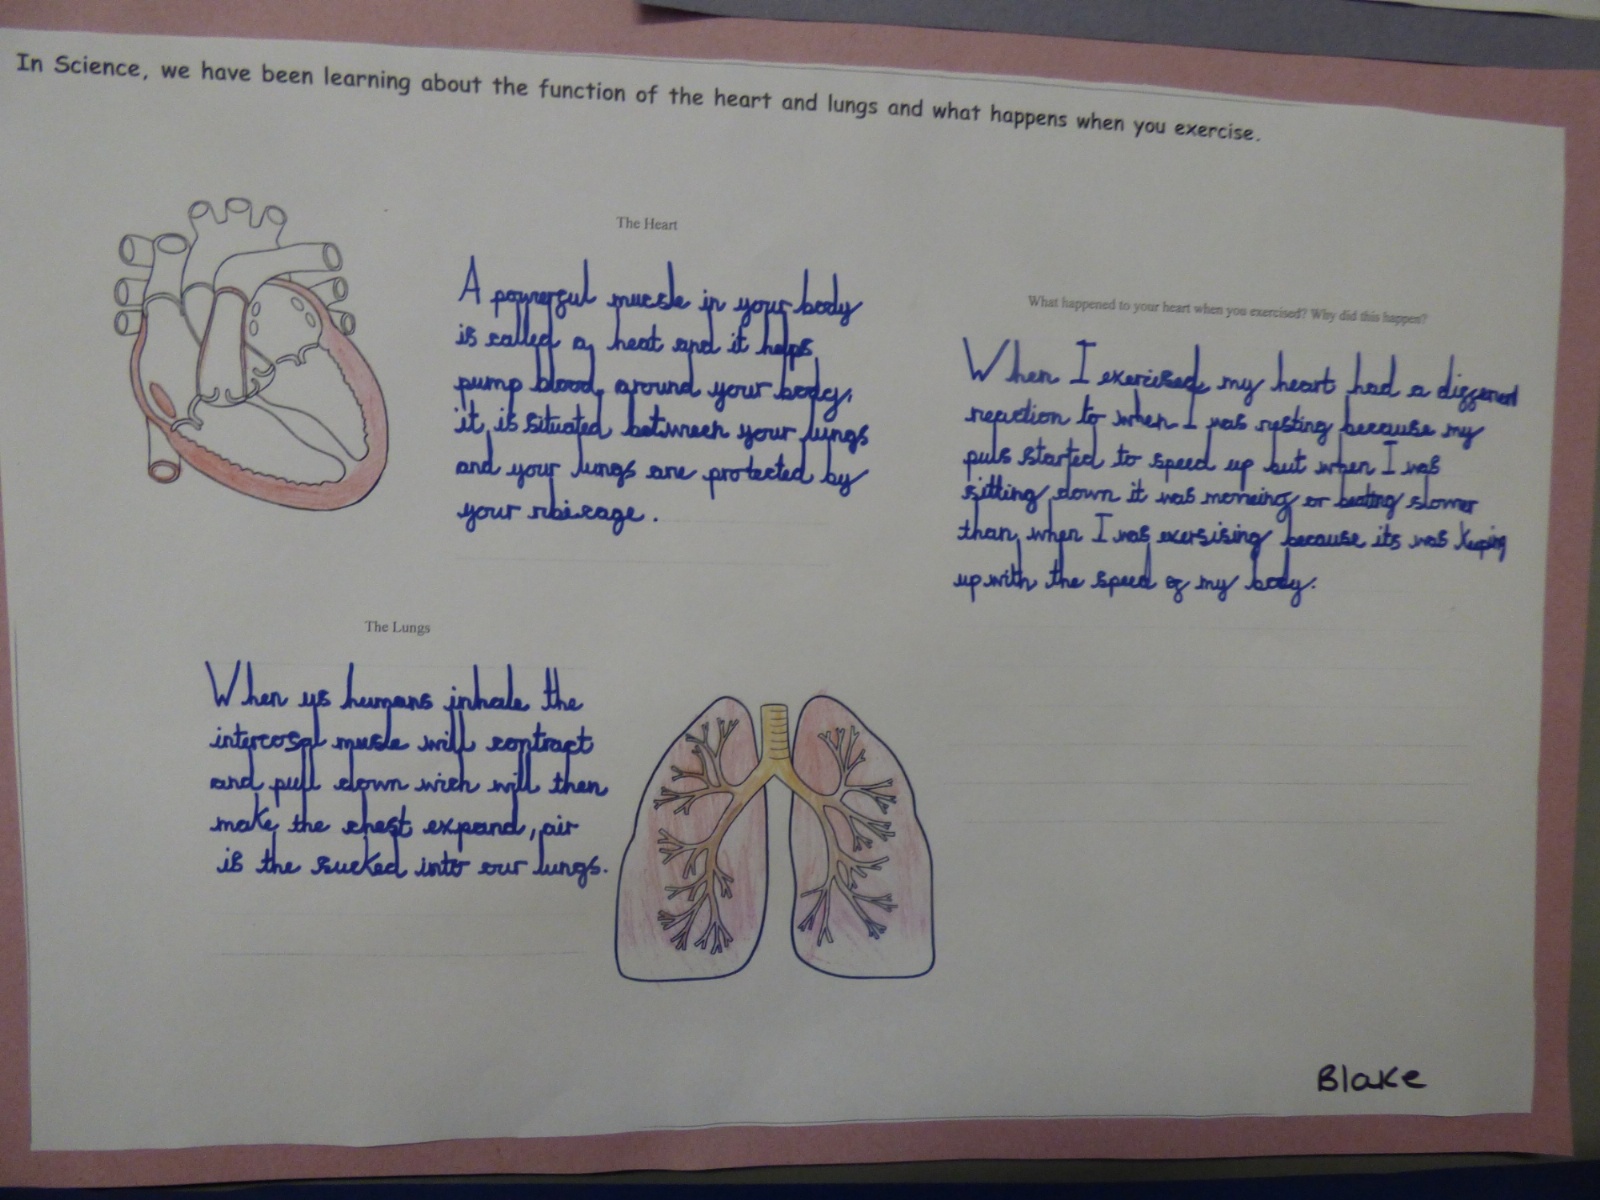 In Science, we have been learning about the function of the heart and lungs and what happens when you exercise.
The Heart
A powerful muscle in your body
is called a heat and it helps
pump blood around your body,
it is situated between your lungs
and your lungs are protected by
your rbicage.
What happened to your heart when you exercised? Why did this happen?
When I exercised my heart had a different
reaction to when I was resting because my
puls started to speed up but when I was
sitting down it was or beating slower
than when I was exersising because its was keeping
up with the speed of my body.
The Lungs
When us humans inhale the
intercosal musle will contract
and pull down wich will then
make the chest expand, air
is the sucked into our lungs.
Blake